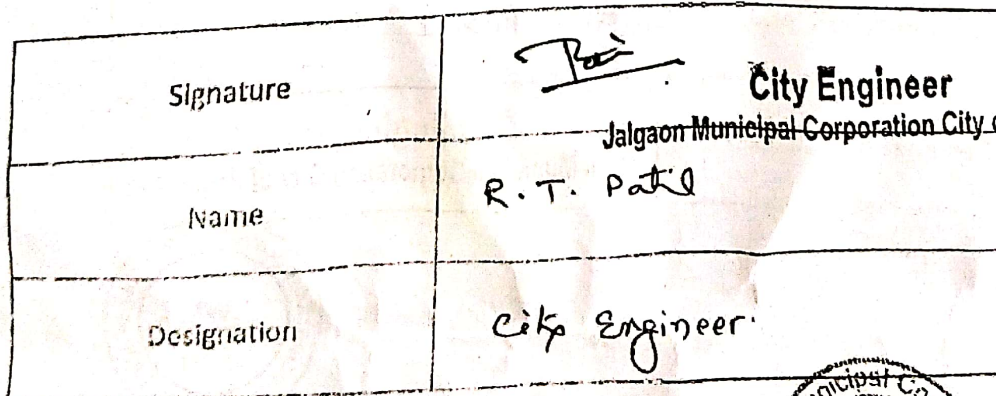 Signature
City Engineer
Jalgaon Municipal Corporation City
Name R. T. Patil
Designation City Engineer.
unicipal Co